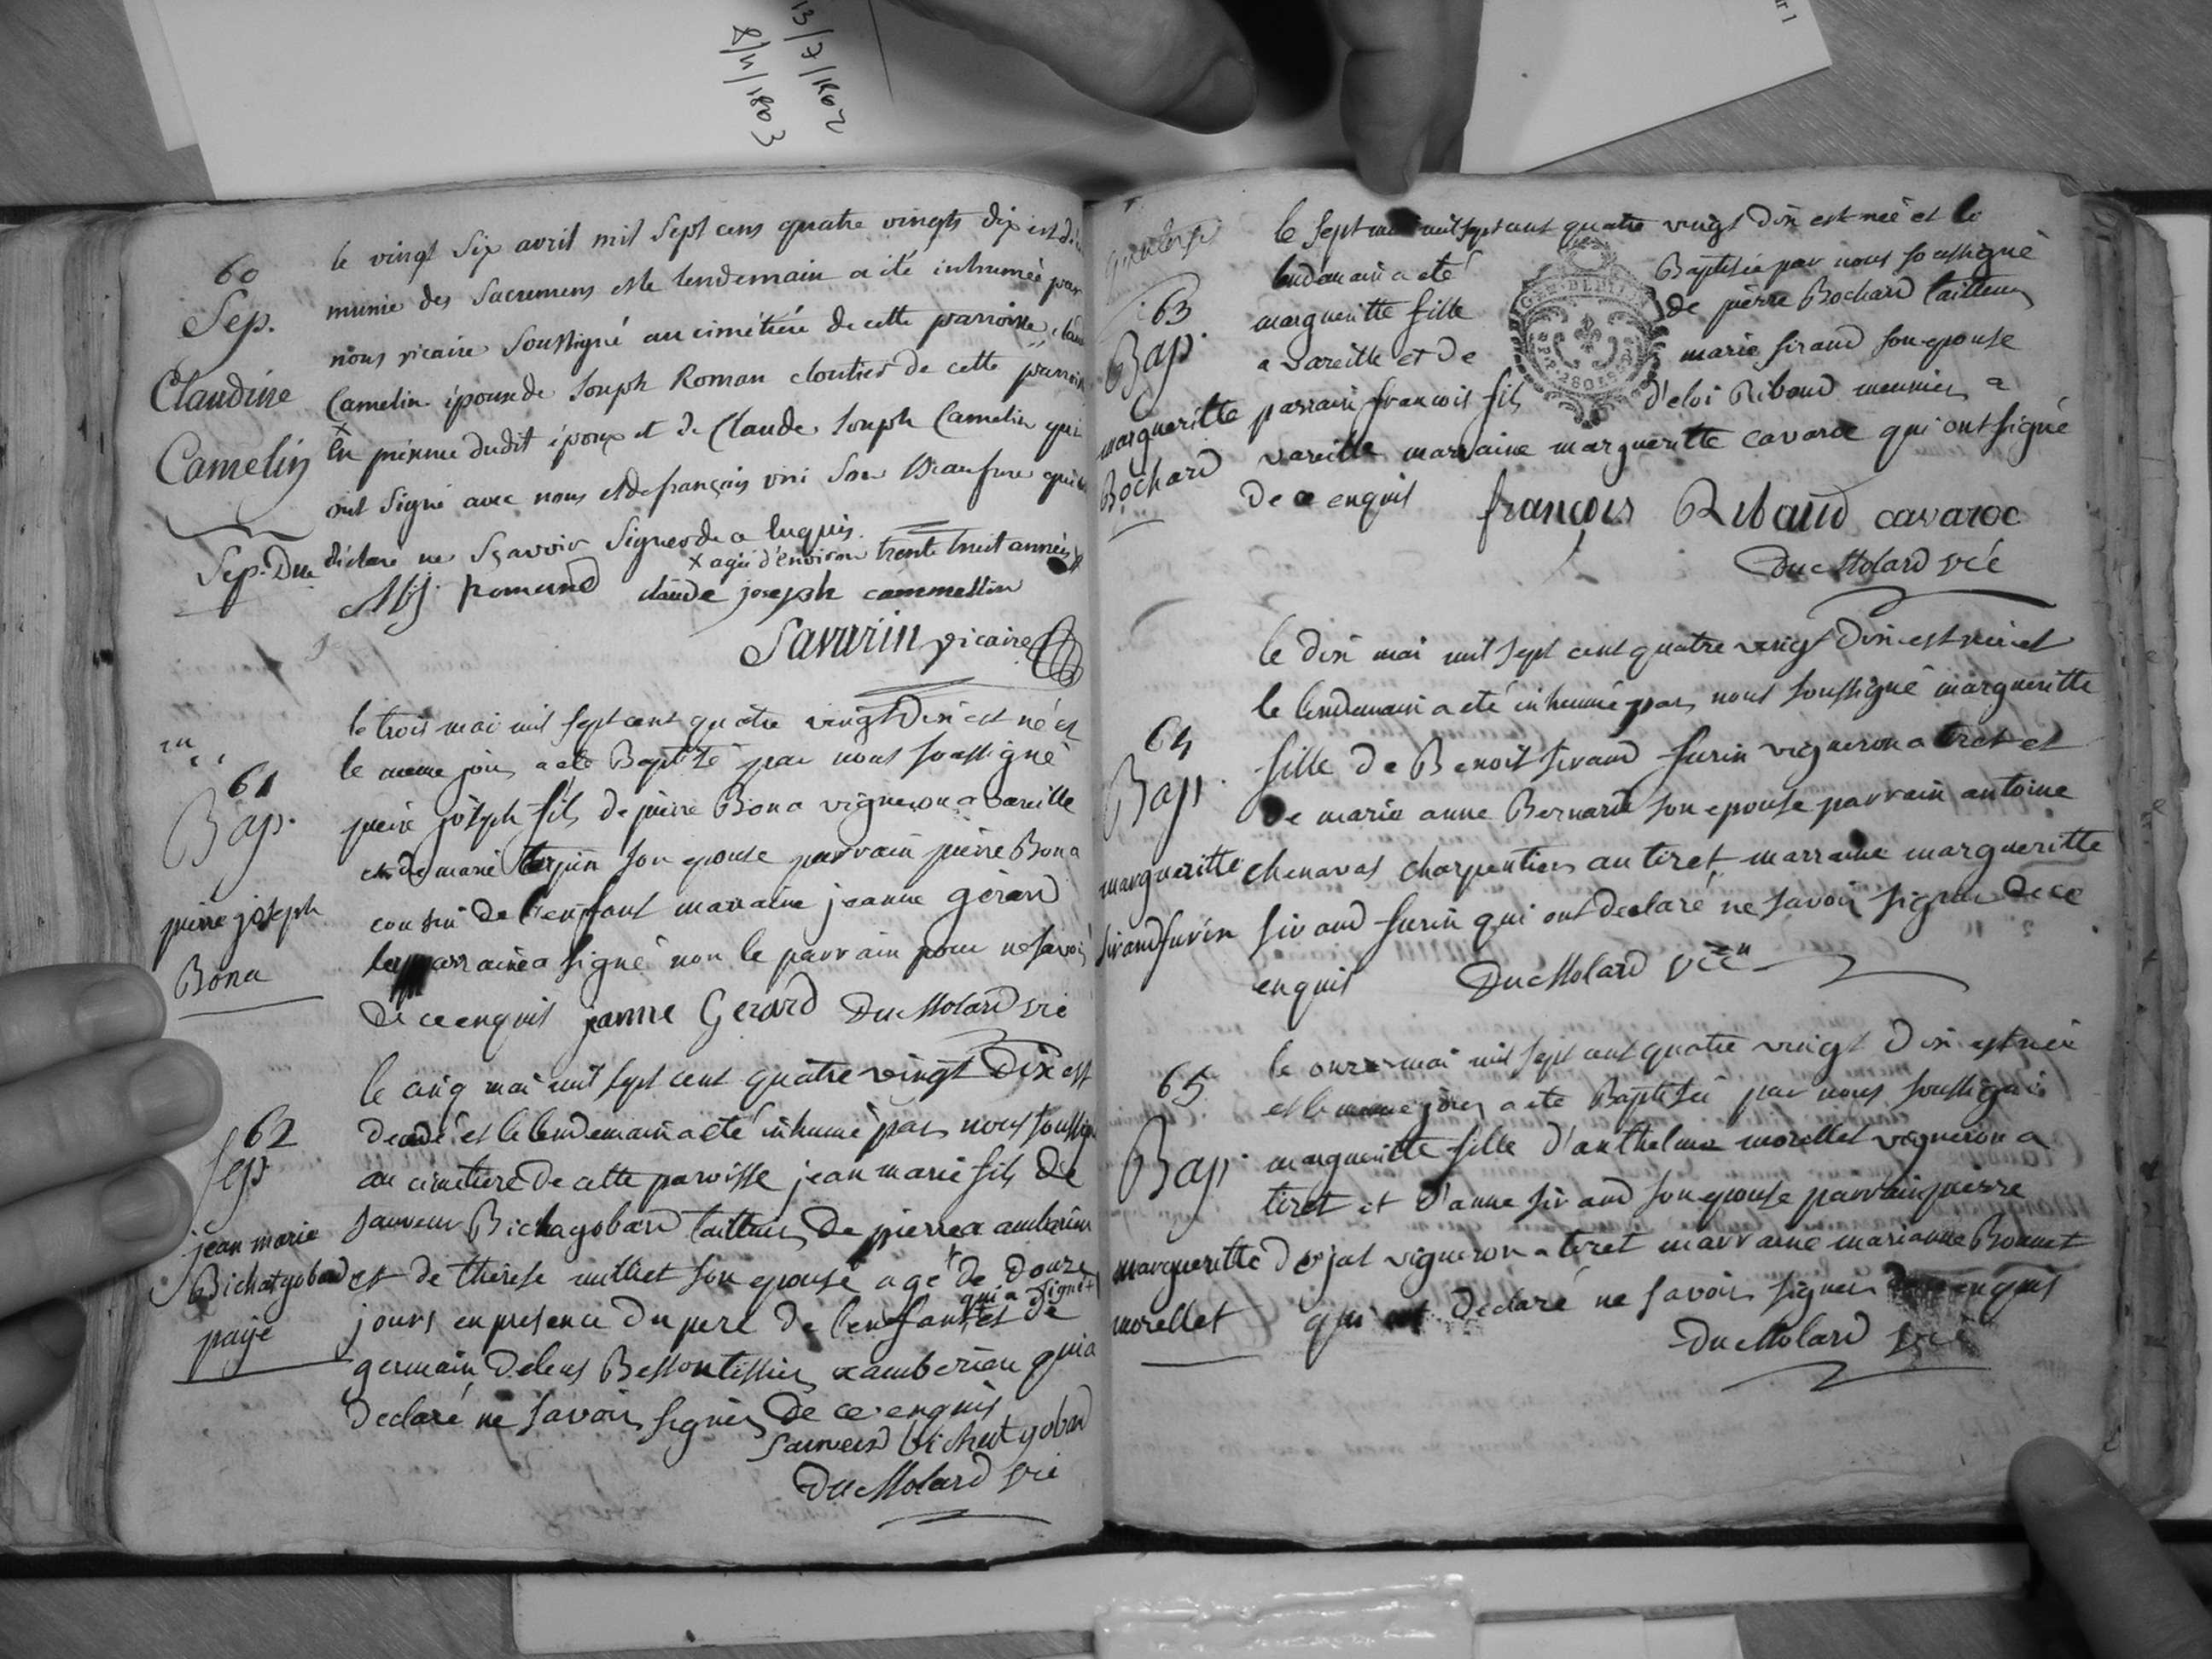 13/7/1802
8/4/1803
60
Sep.
Claudine
Camelin
Sep. Due
le vingt six avril mil sept cens quatre vingts dix est
munie des Sacremens et le lendemain a été inhumée par
nous vicaire Soussigné au cimétière de cette parroisse
Camelin épouse de Joseph Roman cloutier de cette parroisse
x En présence dudit époux et de Claude Joseph Camelin qui
ont Signé avec nous et de françois vini Son Beaufrere qui
déclaré ne Sçavoir Signer de ce enquis.
x agée d'environ trente huit années
Romand claude joseph cammellin
Savarin vicaire
61
Bap.
pierre joseph
Bona
le trois mai mil sept cent quatre vingt Dix est né et
le meme jour a eté Baptisé par nous soussigné
pierre joseph fils de pierre Bona vigneron a vareille
et de marie terpin son epouse parrain pierre Bona
cousin de l'enfant marraine jeanne gérard
la marraine a signé non le parrain pour ne savoir
de ce enquis janne Gerard Du Molard vie
62
Sep
jean marie
Bichatgobard
payé
le cinq mai mil sept cent quatre vingt Dix est
decedé et le lendemain a eté inhumé par nous soussig
au cimetiere de cette paroisse jean marie fils de
sauveur Bichagobard tailleur de pierre a amberieu
et de thérese milliet son epouse agé de douze
qui a signé +
jours en presence du pere de l'enfant + et de
germain deleus Besson tissier a amberieu qui a
declaré ne savoir signer de ce enquis
sauveur bichat gobard
Du Molard vie
63
Bap.
margueritte
Bochard
le sept mai mil sept cent quatre vingt Dix est née et le
lendemain a eté Baptisée par nous soussigné
margueritte fille de pierre Bochard tailleur
a vareille et de marie sirand son epouse
parrain francois fils d'eloi Ribaud meunier a
vareille marraine margueritte cavaroc qui ont signé
de ce enquis françois Ribaud cavaroc
Du Molard vié
64
Bap.
margueritte
sirand furin
le dix mai mil sept cent quatre vingt Dix est née et
le lendemain a eté inhumé par nous soussigné margueritte
fille de Benoit sirand furin vigneron a tiret et
de marie anne Bernard son epouse parrain antoine
chenavas charpentier au tiret marraine margueritte
sirand furin qui ont declaré ne savoir signer de ce
enquis Du Molard vie
65
Bap.
margueritte
morellet
le onze mai mil sept cent quatre vingt Dix est née
et le meme jour a eté Baptisée par nous soussigné
margueritte fille d'anthelme morellet vigneron a
tiret et d'anne sirand son epouse parrain pierre
dejat vigneron a tiret marraine marianne Bonnet
qui ont declaré ne savoir signer de ce enquis
Du Molard vie